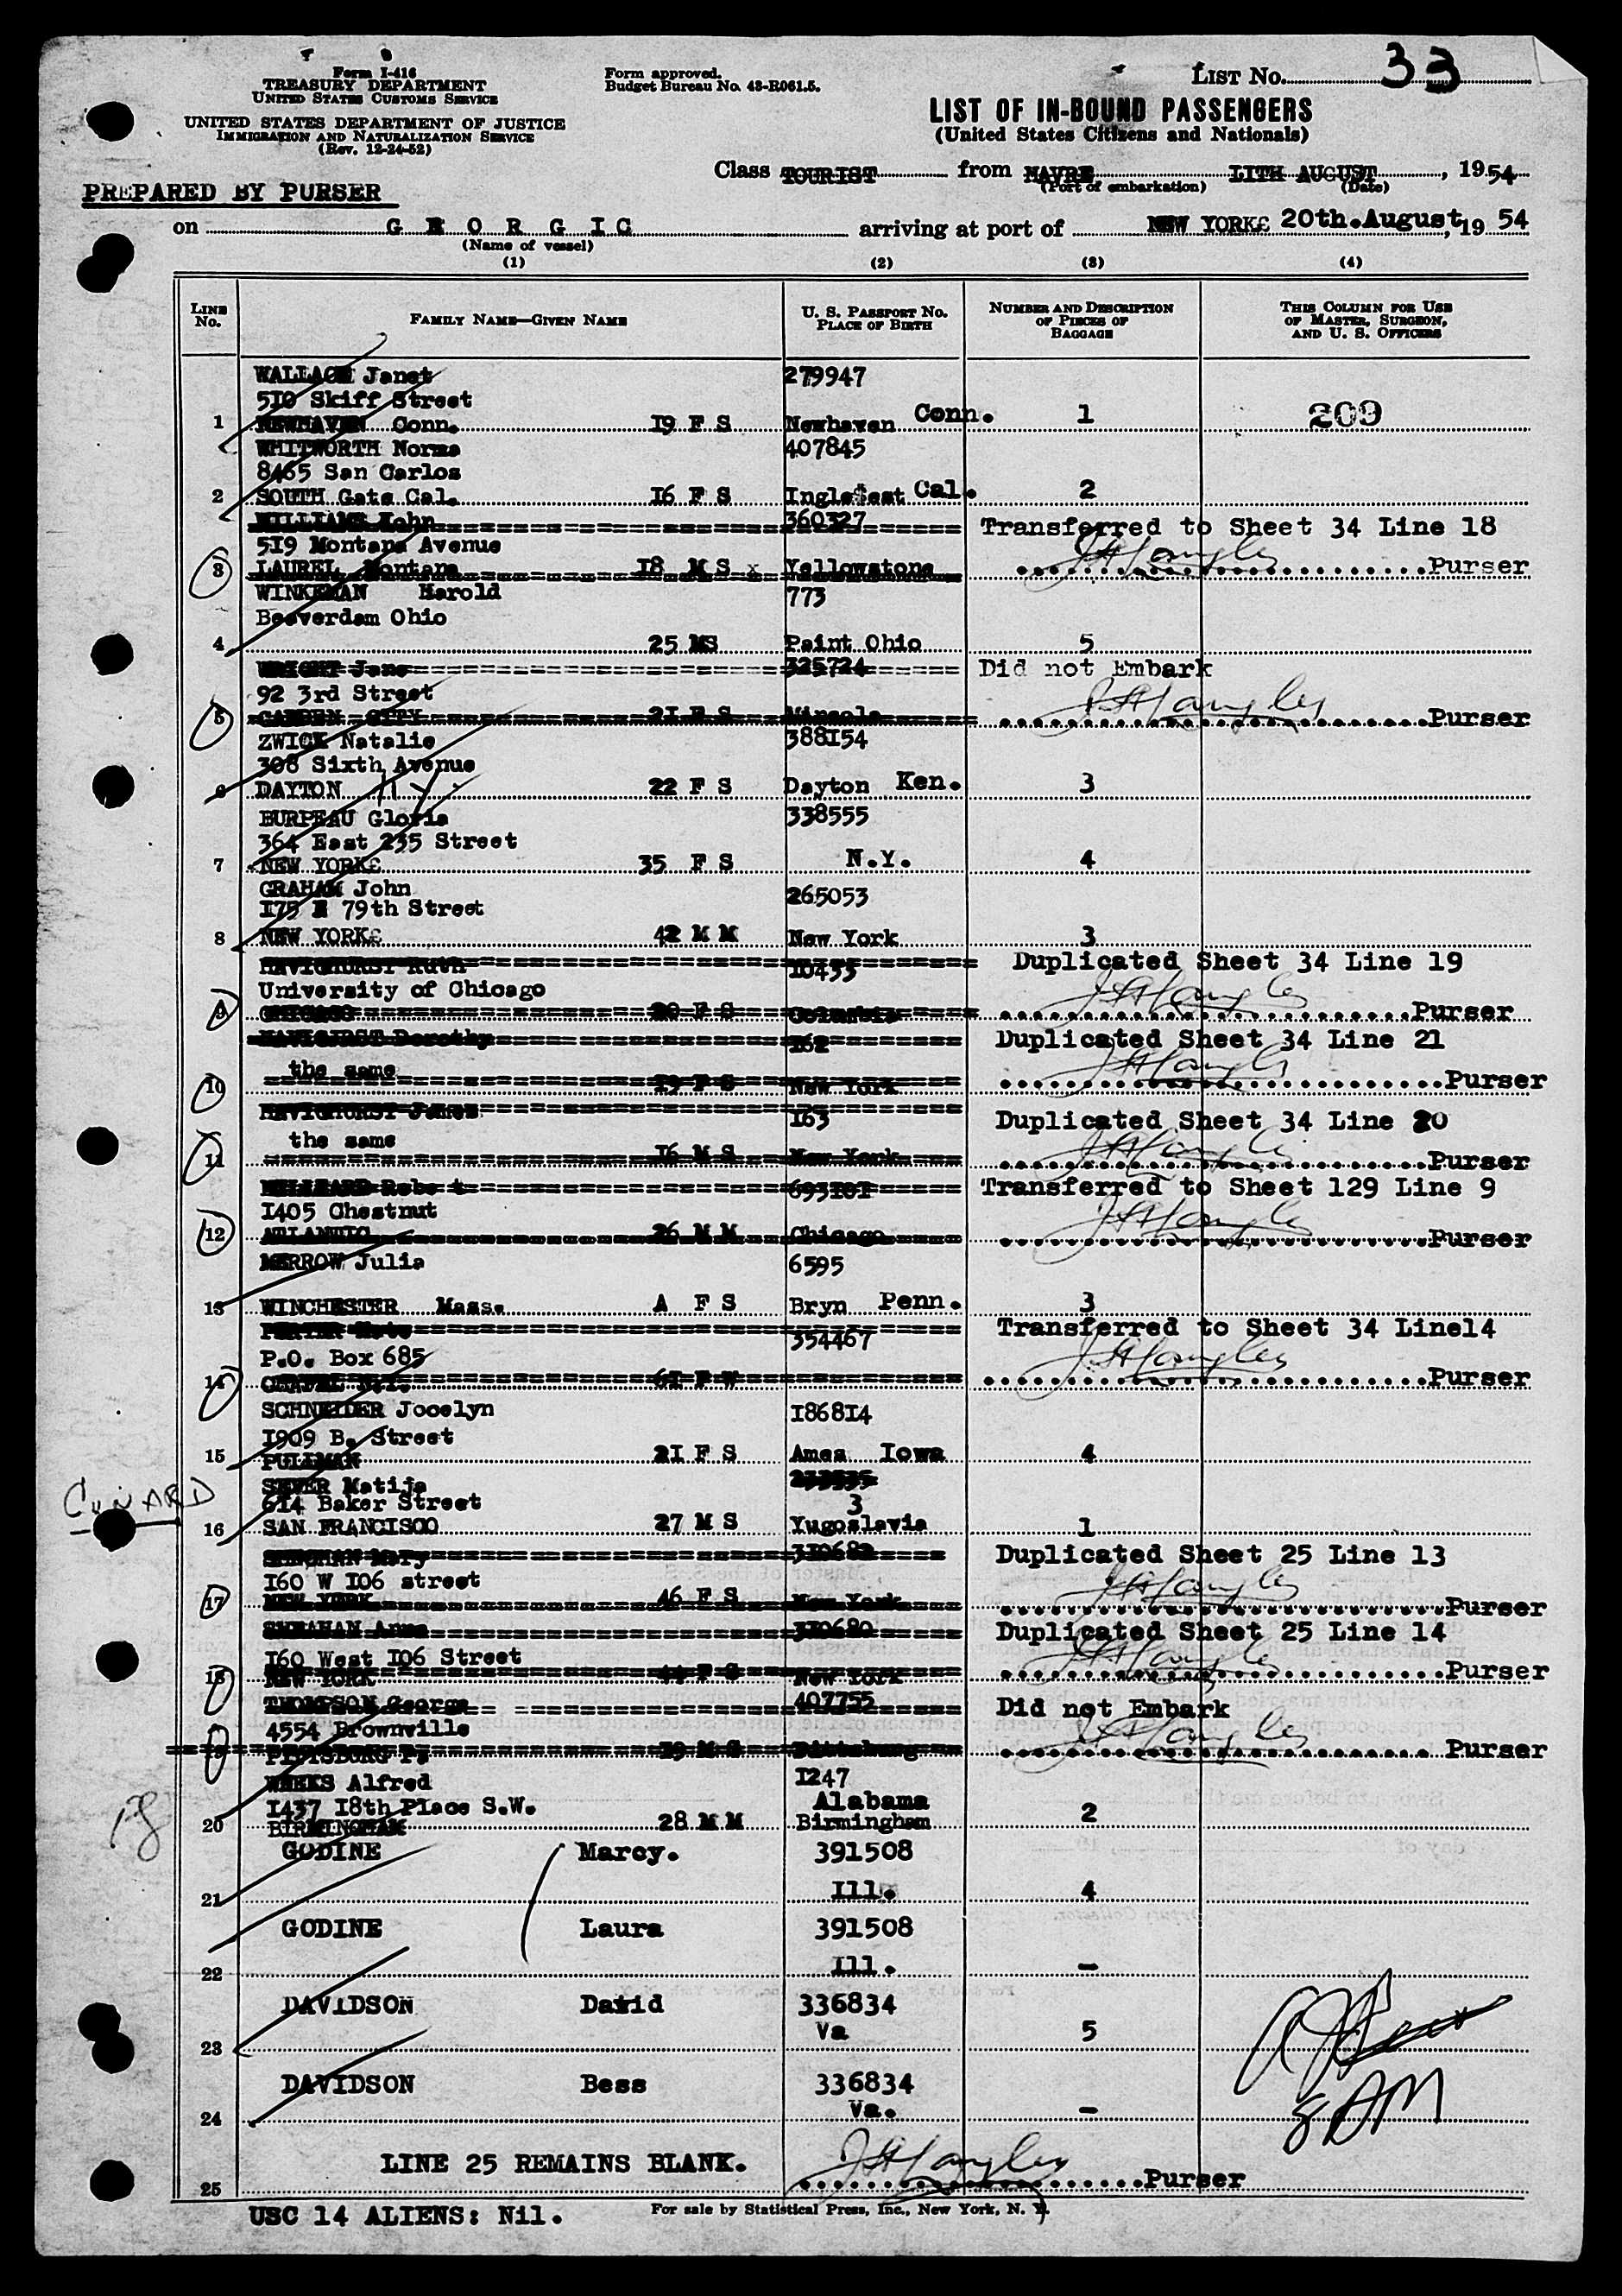 Form I-416
TREASURY DEPARTMENT
UNITED STATES CUSTOMS SERVICE
UNITED STATES DEPARTMENT OF JUSTICE
IMMIGRATION AND NATURALIZATION SERVICE
(Rev. 12-24-52)
Form approved.
Budget Bureau No. 43-R061.5.
LIST NO. 33
LIST OF IN-BOUND PASSENGERS
(United States Citizens and Nationals)
Class TOURIST from HAVRE 11TH AUGUST, 1954
(Port of embarkation) (Date)
PREPARED BY PURSER
on GEORGIC arriving at port of NEW YORK£ 20th.August, 19 54
(Name of vessel)
(1) (2) (3) (4)
LINE No.
FAMILY NAME—GIVEN NAME
U. S. PASSPORT NO.
PLACE OF BIRTH
NUMBER AND DESCRIPTION
OF PIECES OF
BAGGAGE
THIS COLUMN FOR USE
OF MASTER, SURGEON,
AND U. S. OFFICERS
WALLACE Janet 279947
510 Skiff Street
1 NEWHAVEN Conn. 19 F S Newhaven Conn. 1 209
WHITWORTH Norma 407845
8465 San Carlos
2 SOUTH Gate Cal. 16 F S Cal. 2
WILLIAMS John 360327 Transferred to Sheet 34 Line 18
519 Montana Avenue
3 LAUREL Montana 18 M S x Yellowstone Purser
WINKEMAN Harold 773
Beaverdam Ohio
4 25 MS Paint Ohio 5
WRIGHT Jane 325724 Did not Embark
92 3rd Street
5 GARDEN CITY 21 F S Mineola Purser
ZWICK Natalie 388154
308 Sixth Avenue
6 DAYTON 22 F S Dayton Ken. 3
BURPEAU Gloria 338555
364 East 235 Street
7 NEW YORK£ 35 F S N.Y. 4
GRAHAM John 265053
175 E 79th Street
8 NEW YORK£ 42 M M New York 3
HAVIGHURST Ruth 10455 Duplicated Sheet 34 Line 19
University of Chicago
9 CHICAGO 20 F S Columbia Purser
Dorothy 162 Duplicated Sheet 34 Line 21
the same
10 19 F S New York Purser
HAVIGHURST James 163 Duplicated Sheet 34 Line 20
the same
11 16 M S New York Purser
693101 Transferred to Sheet 129 Line 9
1405 Chestnut
12 ATLANTIC 26 M M Chicago Purser
MERROW Julia 6595
13 WINCHESTER Mass. A F S Bryn Penn. 3
354467 Transferred to Sheet 34 Line14
P.O. Box 685
14 61 F W Purser
SCHNEIDER Jocelyn 186814
1909 B. Street
15 PULLMAN 21 F S Ames Iowa 4
SEVER Matija
614 Baker Street 3
CUNARD
16 SAN FRANCISCO 27 M S Yugoslavia 1
Mary Duplicated Sheet 25 Line 13
160 W 106 street
17 NEW YORK 46 F S New York Purser
Anna 310680 Duplicated Sheet 25 Line 14
160 West 106 Street
18 NEW YORK 44 F S New York Purser
THOMPSON George 407755 Did not Embark
4554 Brownville
19 PITTSBURG Pa 19 M S Pittsburg Purser
WEEKS Alfred 1247
1437 18th Place S.W. Alabama
20 BIRMINGHAM 28 M M Birmingham 2
GODINE Marcy. 391508
21 Ill. 4
GODINE Laura 391508
22 Ill. -
DAVIDSON David 336834
23 Va 5
DAVIDSON Bess 336834
24 Va. -
LINE 25 REMAINS BLANK.
25 Purser
USC 14 ALIENS: Nil.
For sale by Statistical Press, Inc., New York, N. Y.